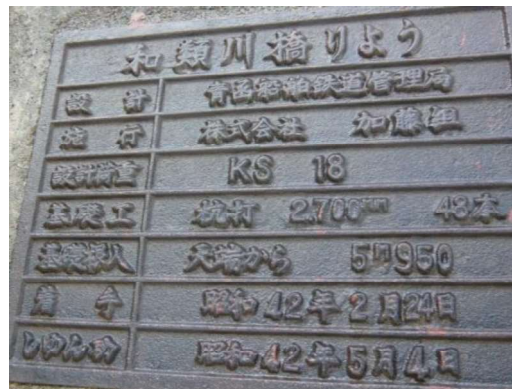 和類川橋りよう
設計 青函船舶鉄道管理局
施行 株式会社 加藤組
設計荷重 KS 18
基礎工 杭打 2,700 48本
基礎根入 天端から 5m950
着手 昭和42年2月24日
しゆん功 昭和42年5月4日